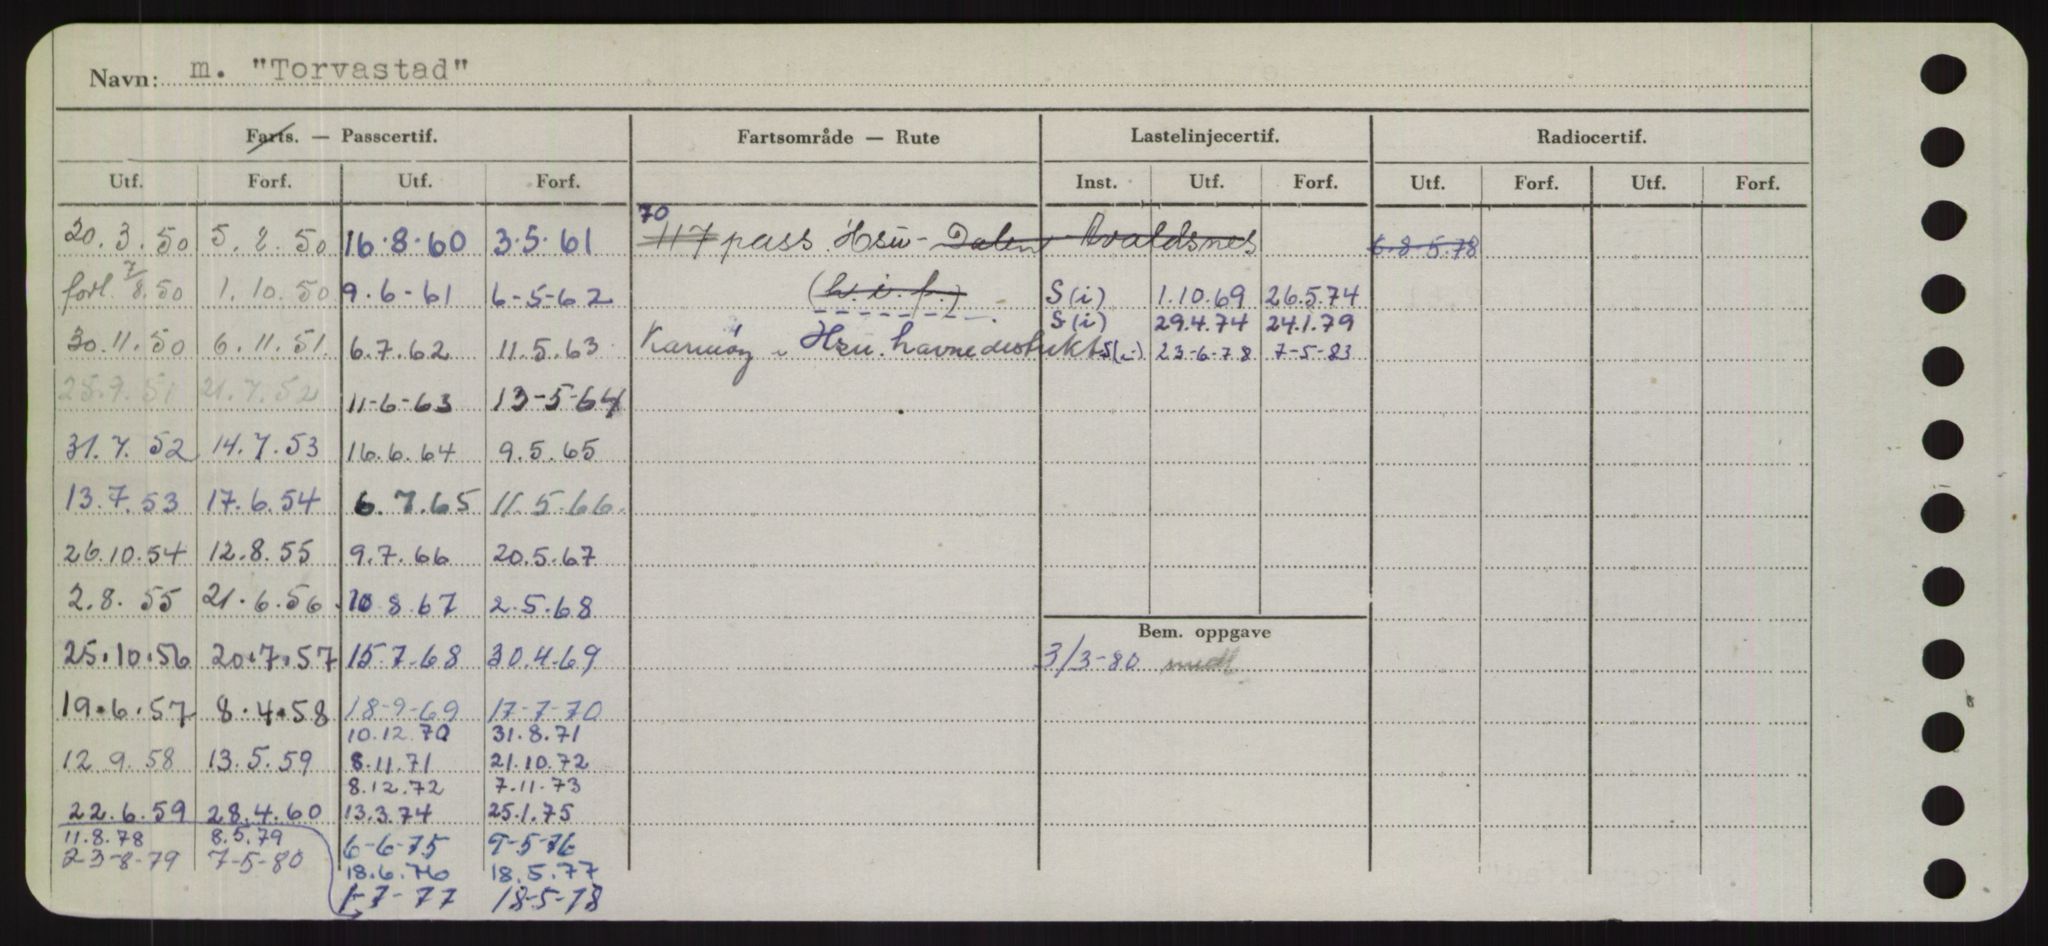 Navn: m. "Torvastad"
Farts. — Passcertif. Fartsområde — Rute Lastelinjecertif. Radiocertif.
Utf. Forf. Utf. Forf. Inst. Utf. Forf. Utf. Forf. Utf. Forf.
70
20.3.50 5.2.50 16.8.60 3.5.61 117 pass. Hsu - Dalen - Avaldsnes 6.8-5.78
forl. 7/8.50 1.10.50 9.6-61 6-5-62 (h.i.f.) S(i) 1.10.69 26.5.74
S(i) 29.4.74 24.1.79
30.11.50 6.11.51. 6.7.62 11.5.63 Karmøy Hsu. havnedistrikt S(i) 23-6-78 7-5-83
25.7.51 21.7.52 11-6-63 13-5-64
31.7.52 14.7.53 16.6.64 9.5.65
13.7.53 17.6.54 6.7.65 11.5.66.
26.10.54 12.8.55 9.7.66 20.5.67
2.8.55 21.6.56 10 8.67 2.5.68
Bem. oppgave
25.10.56 20.7.57 15.7.68 30.4.69 3/3-80 medt
19.6.57 8.4.58 18-9-69 17-7-70
10.12.70 31.8.71
12 9.58 13.5.59 8.11.71 21.10.72
8.12.72 7.11.73
22.6.59 28.4.60 13.3.74 25.1.75
11.8.78 8.5.79 6-6-75 9-5-76
23-8-79 7-5-80 18.6.76 18.5.77
1-7-77 18-5-78